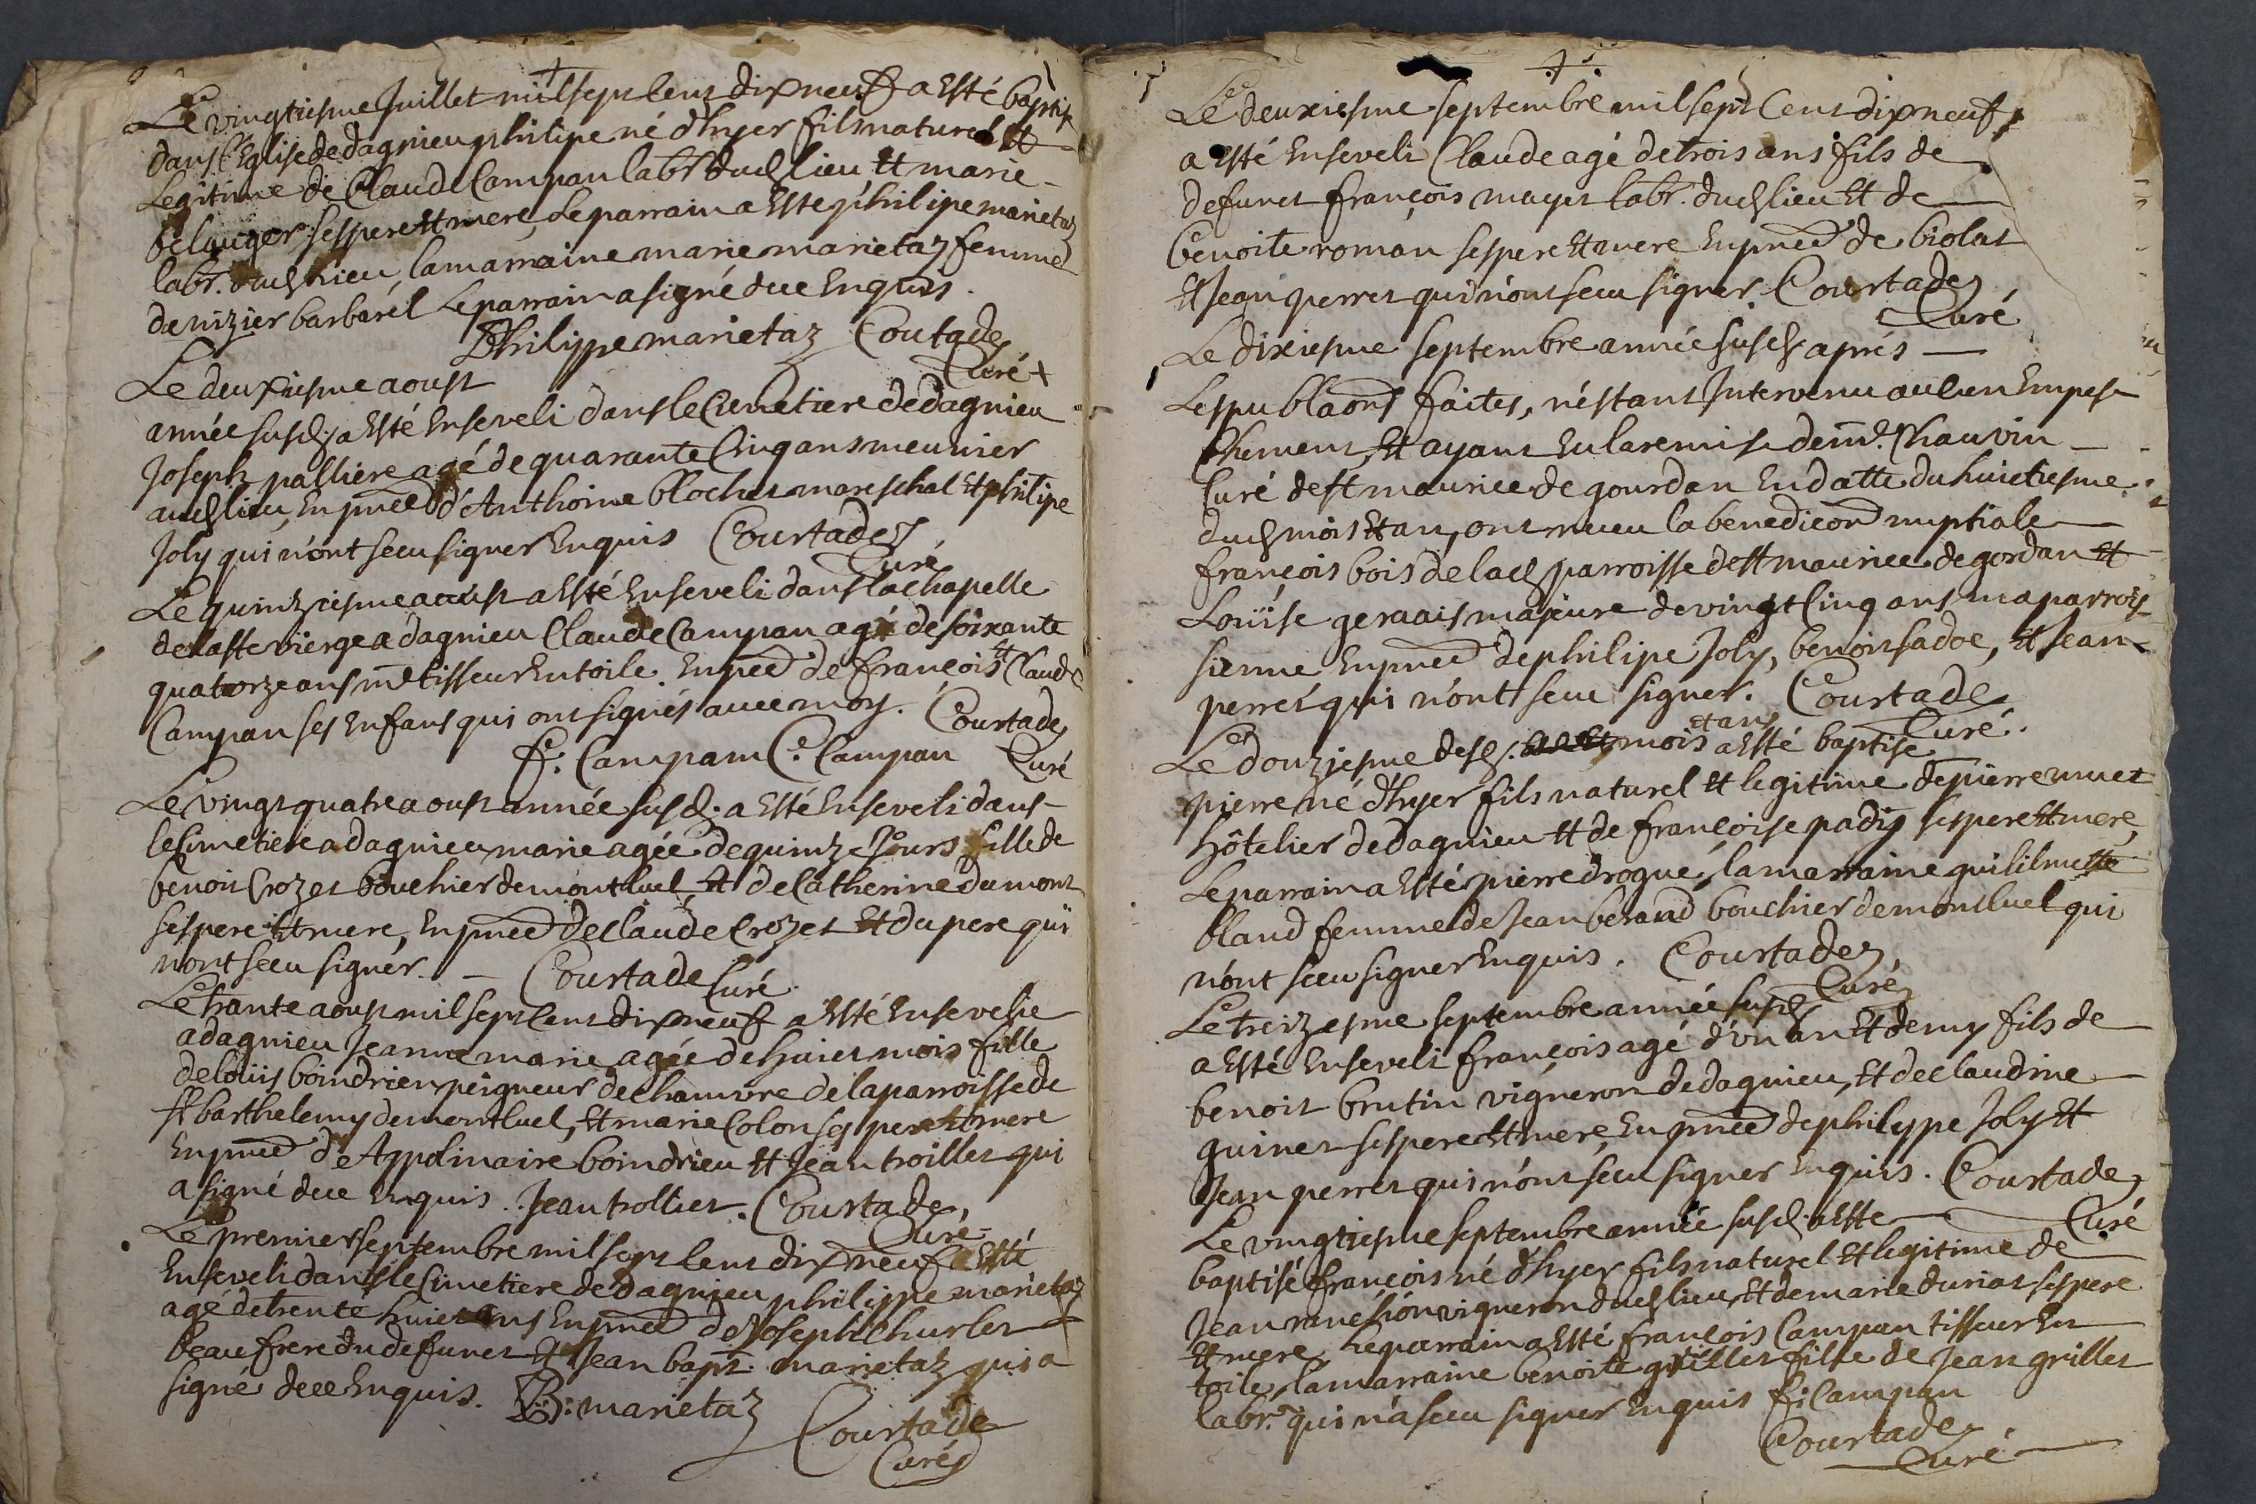 Le vingtiesme Juillet mil sept cent dixneuf a esté baptisé
dans l'Eglise de dagnieu philipe né d'hyer fils naturel et
Legitime de Claude Campan labr dud lieu et marie
belanger ses pere et mere, Le parrain a esté philipe marietaz
labr. dud lieu, la marraine marie marietaz femme
de nizier barbarel Le parrain a signé de ce Enquis.
Philippe marietaz Coutade
Curé
Le deuxiesme aoust
année susd. a esté Enseveli dans le Cimetiere de dagnieu
Joseph palliere agé de quarante Cinq ans meunier
aud lieu, En pnce d'Anthoine blochet mareschal et philipe
Joly qui n'ont sceu signer Enquis Courtade
Curé
Le quinziesme aoust a esté Enseveli dans la chapelle
de la ste vierge a dagnieu Claude Campan agé de soixante
quatorze ans me tisseur En toile. En pnce de françois et Claude
Campan ses Enfans qui ont signés avec moy. Courtade
f. Campam C. Campan Curé
Le vingt quatre aoust année susd. a esté Enseveli dans
le Cimetiere a dagnieu marie agée de quinze Jours fille de
benoit Crozet bouchier de montluel et de Catherine dumont
ses pere et mere, En pnce de Claude Crozet et du pere qui
n'ont sceu signer. Courtade Curé
Le trante aoust mil sept cent dixneuf a esté Ensevelie
a dagnieu Jeanne marie agée de huict mois fille
de loüis boindrieu peigneur de chamvre de la parroisse de
st barthelemy de montluel, et marie Colon ses pere et mere
En pnce d'Appolinaire boindrieu et Jean troillet qui
a signé de ce Enquis. Jean trollier. Courtade,
Curé
Le premier septembre mil sept cent dixneuf a esté
Enseveli dans le Cimetiere de dagnieu philippe marietaz
agé de trente huict ans En pnce de Joseph Churlet
beau frere du defunct et Jean bapt. marietaz qui a
signé de ce Enquis. JB: marietaz Courtade
Curé
Le deuxiesme septembre mil sept Cent dixneuf
a esté Enseveli Claude agé de trois ans fils de
defunct françois mayet labr. dud lieu et de
benoite roman ses pere et mere En pnce de biolat
et Jean perret qui n'ont sceu signer. Courtade
Curé
Le dixiesme septembre année susd apres
Les publaons faites, n'estant Intervenu aulcun Empes
chement, et ayant Eu la remise de mr. Chauvin
Curé de st maurice de gourdan En datte du huictiesme
dud mois et an, ont receu la benediction nuptiale
françois bois de lad parroisse de st maurice de gordan et
Loüise gervais majeure de vingt Cinq ans ma parrois
sienne En pnce de philipe Joly, benoit sadoe, et Jean
perret qui n'ont sceu signer. Courtade
Curé.
Le douziesme desd. mois et an a esté baptise
pierre né d'hyer fils naturel et legitime de pierre muet
hôtelier de dagnieu et de françoise padis ses pere et mere,
Le parrain a esté pierre drogue, la marraine guilelmette
bland femme de Jean berand bouchier de montluel qui
n'ont sceu signer Enquis. Courtade,
Curé
Le treiziesme septembre année susd
a esté Enseveli françois agé d'un an et demy fils de
benoit brutin vigneron de dagnieu, et de claudine
guinet ses pere et mere, En pnce de philippe Joly et
Jean perret qui n'ont sceu signer Enquis. Courtade,
Curé
Le vingtiesme septembre année susd. a esté
baptisé françois né d'hyer fils naturel et legitime de
Jean vigneron dud lieu, et de marie duriat ses pere
et mere Le parrain a esté françois Campan tisseur En
toile, la marraine benoite grillet fille de Jean grillet
labr. qui n'a sceu signer Enquis f. Campan
Courtade
Curé